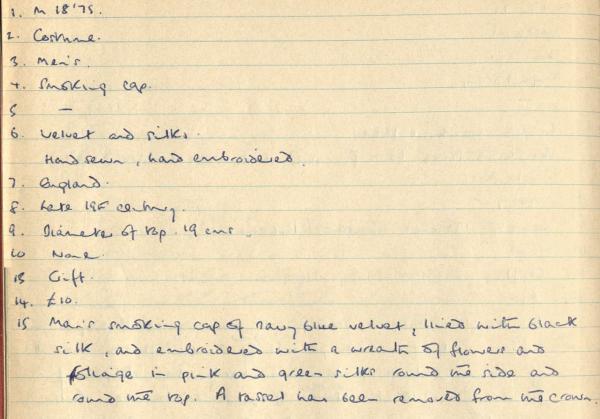 1. M 18'75.
2. Costume.
3. Men's.
4. Smoking cap.
5 —
6. Velvet and silks.
Hand sewn, hand embroidered.
7. England.
8. Late 19th century.
9. Diameter of top. 19 cms.
10 None.
13 Gift.
14. £10.
15 Man's smoking cap of navy blue velvet, lined with black
silk, and embroidered with a wreath of flowers and
foliage in pink and green silks round the side and
round the top. A tassel has been removed from the crown.